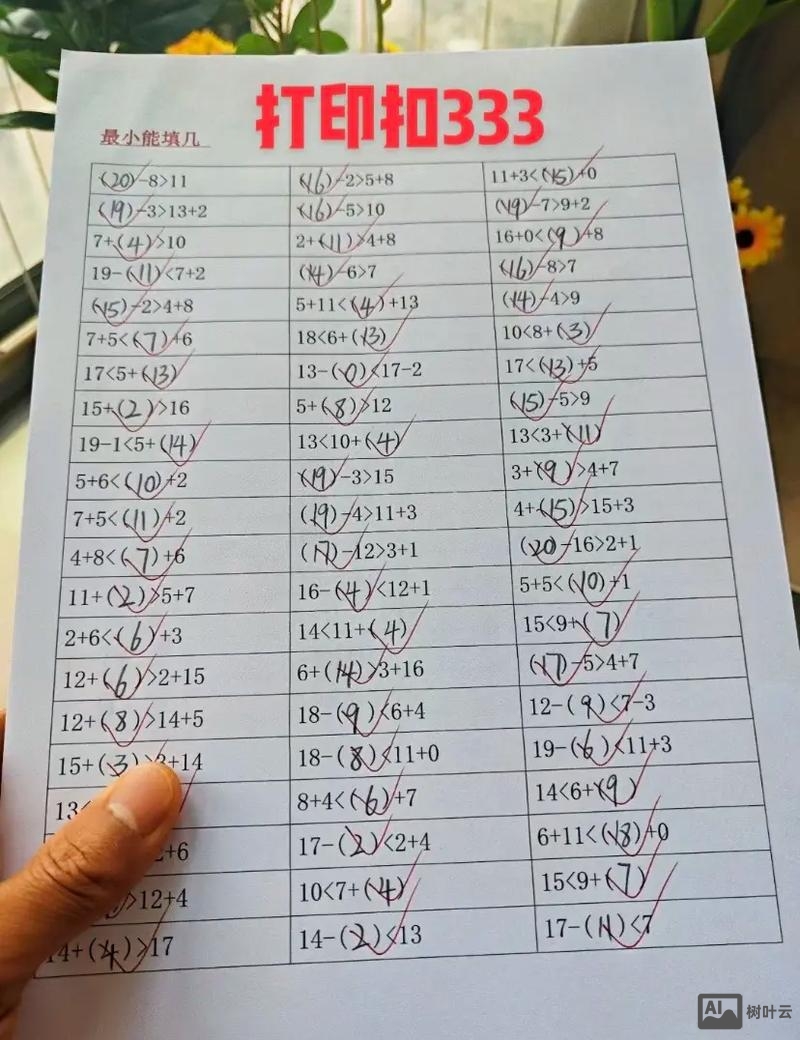 打印扣333
最小能填几
(20)-8>11 (16)-2>5+8 11+3<(15)+0
(19)-3>13+2 (16)-5>10 (19)-7>9+2
7+(4)>10 2+(11)>4+8 16+0<(9)+8
19-(11)<7+2 (14)-6>7 (16)-8>7
(15)-2>4+8 5+11<(4)+13 (14)-4>9
7+5<(7)+6 18<6+(13) 10<8+(3)
17<5+(13) 13-(0)<17-2 17<(13)+5
15+(2)>16 5+(8)>12 (15)-5>9
19-1<5+(14) 13<10+(4) 13<3+(11)
5+6<(10)+2 (19)-3>15 3+(9)>4+7
7+5<(11)+2 (19)-4>11+3 4+(15)>15+3
4+8<(7)+6 (17)-12>3+1 (20)-16>2+1
11+(2)>5+7 16-(4)<12+1 5+5<(10)+1
2+6<(6)+3 14<11+(4) 15<9+(7)
12+(6)>2+15 6+(14)>3+16 (17)-5>4+7
12+(8)>14+5 18-(9)<6+4 12-(9)<7-3
15+(3)>3+14 18-(8)<11+0 19-(6)<11+3
13< 8+4<(6)+7 14<6+(9)
+6 17-(2)<2+4 6+11<(18)+0
)>12+4 10<7+(4) 15<9+(7)
14+(4)>17 14-(2)<13 17-(11)<7
AI 树叶云